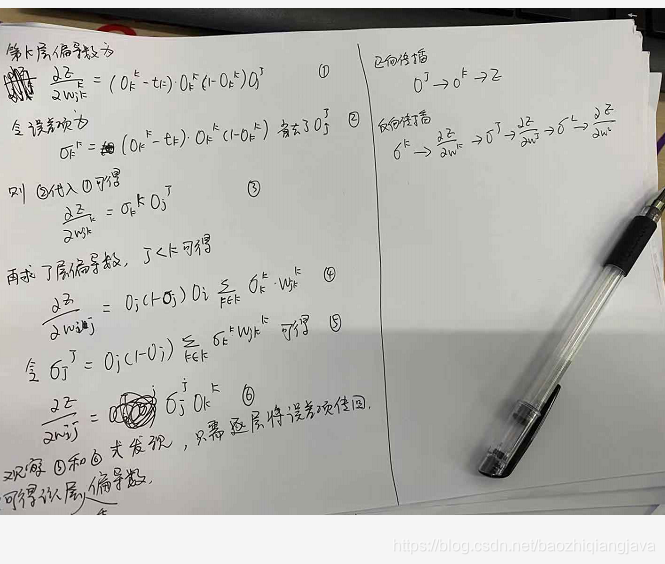 第K层偏导数为
∂Z/∂W_jk^K = (O_k^K - t_k)·O_k^K(1-O_k^K)O_j^J ①
令误差项为
σ_k^K = (O_k^K - t_k)·O_k^K(1-O_k^K) 省去了O_j^J ②
则 ②代入①可得
∂Z/∂W_jk^K = σ_k^K O_j^J ③
再求J层偏导数, J<K可得
∂Z/∂W_ij^J = O_j(1-O_j)O_i Σ_{k∈K} σ_k^K·W_jk^K ④
令 σ_j^J = O_j(1-O_j) Σ_{k∈K} σ_k^K W_jk^K 可得 ⑤
∂Z/∂W_ij^J = σ_j^J O_k^K ⑥
观察⑤和⑥式发现, 只需逐层将误差项传回,
可得该层偏导数.
正向传播
O^J → O^K → Z
反向传播
σ^K → ∂Z/∂W^K → σ^J → ∂Z/∂W^J → σ^L → ∂Z/∂W^L
https://blog.csdn.net/baozhiqiangjava